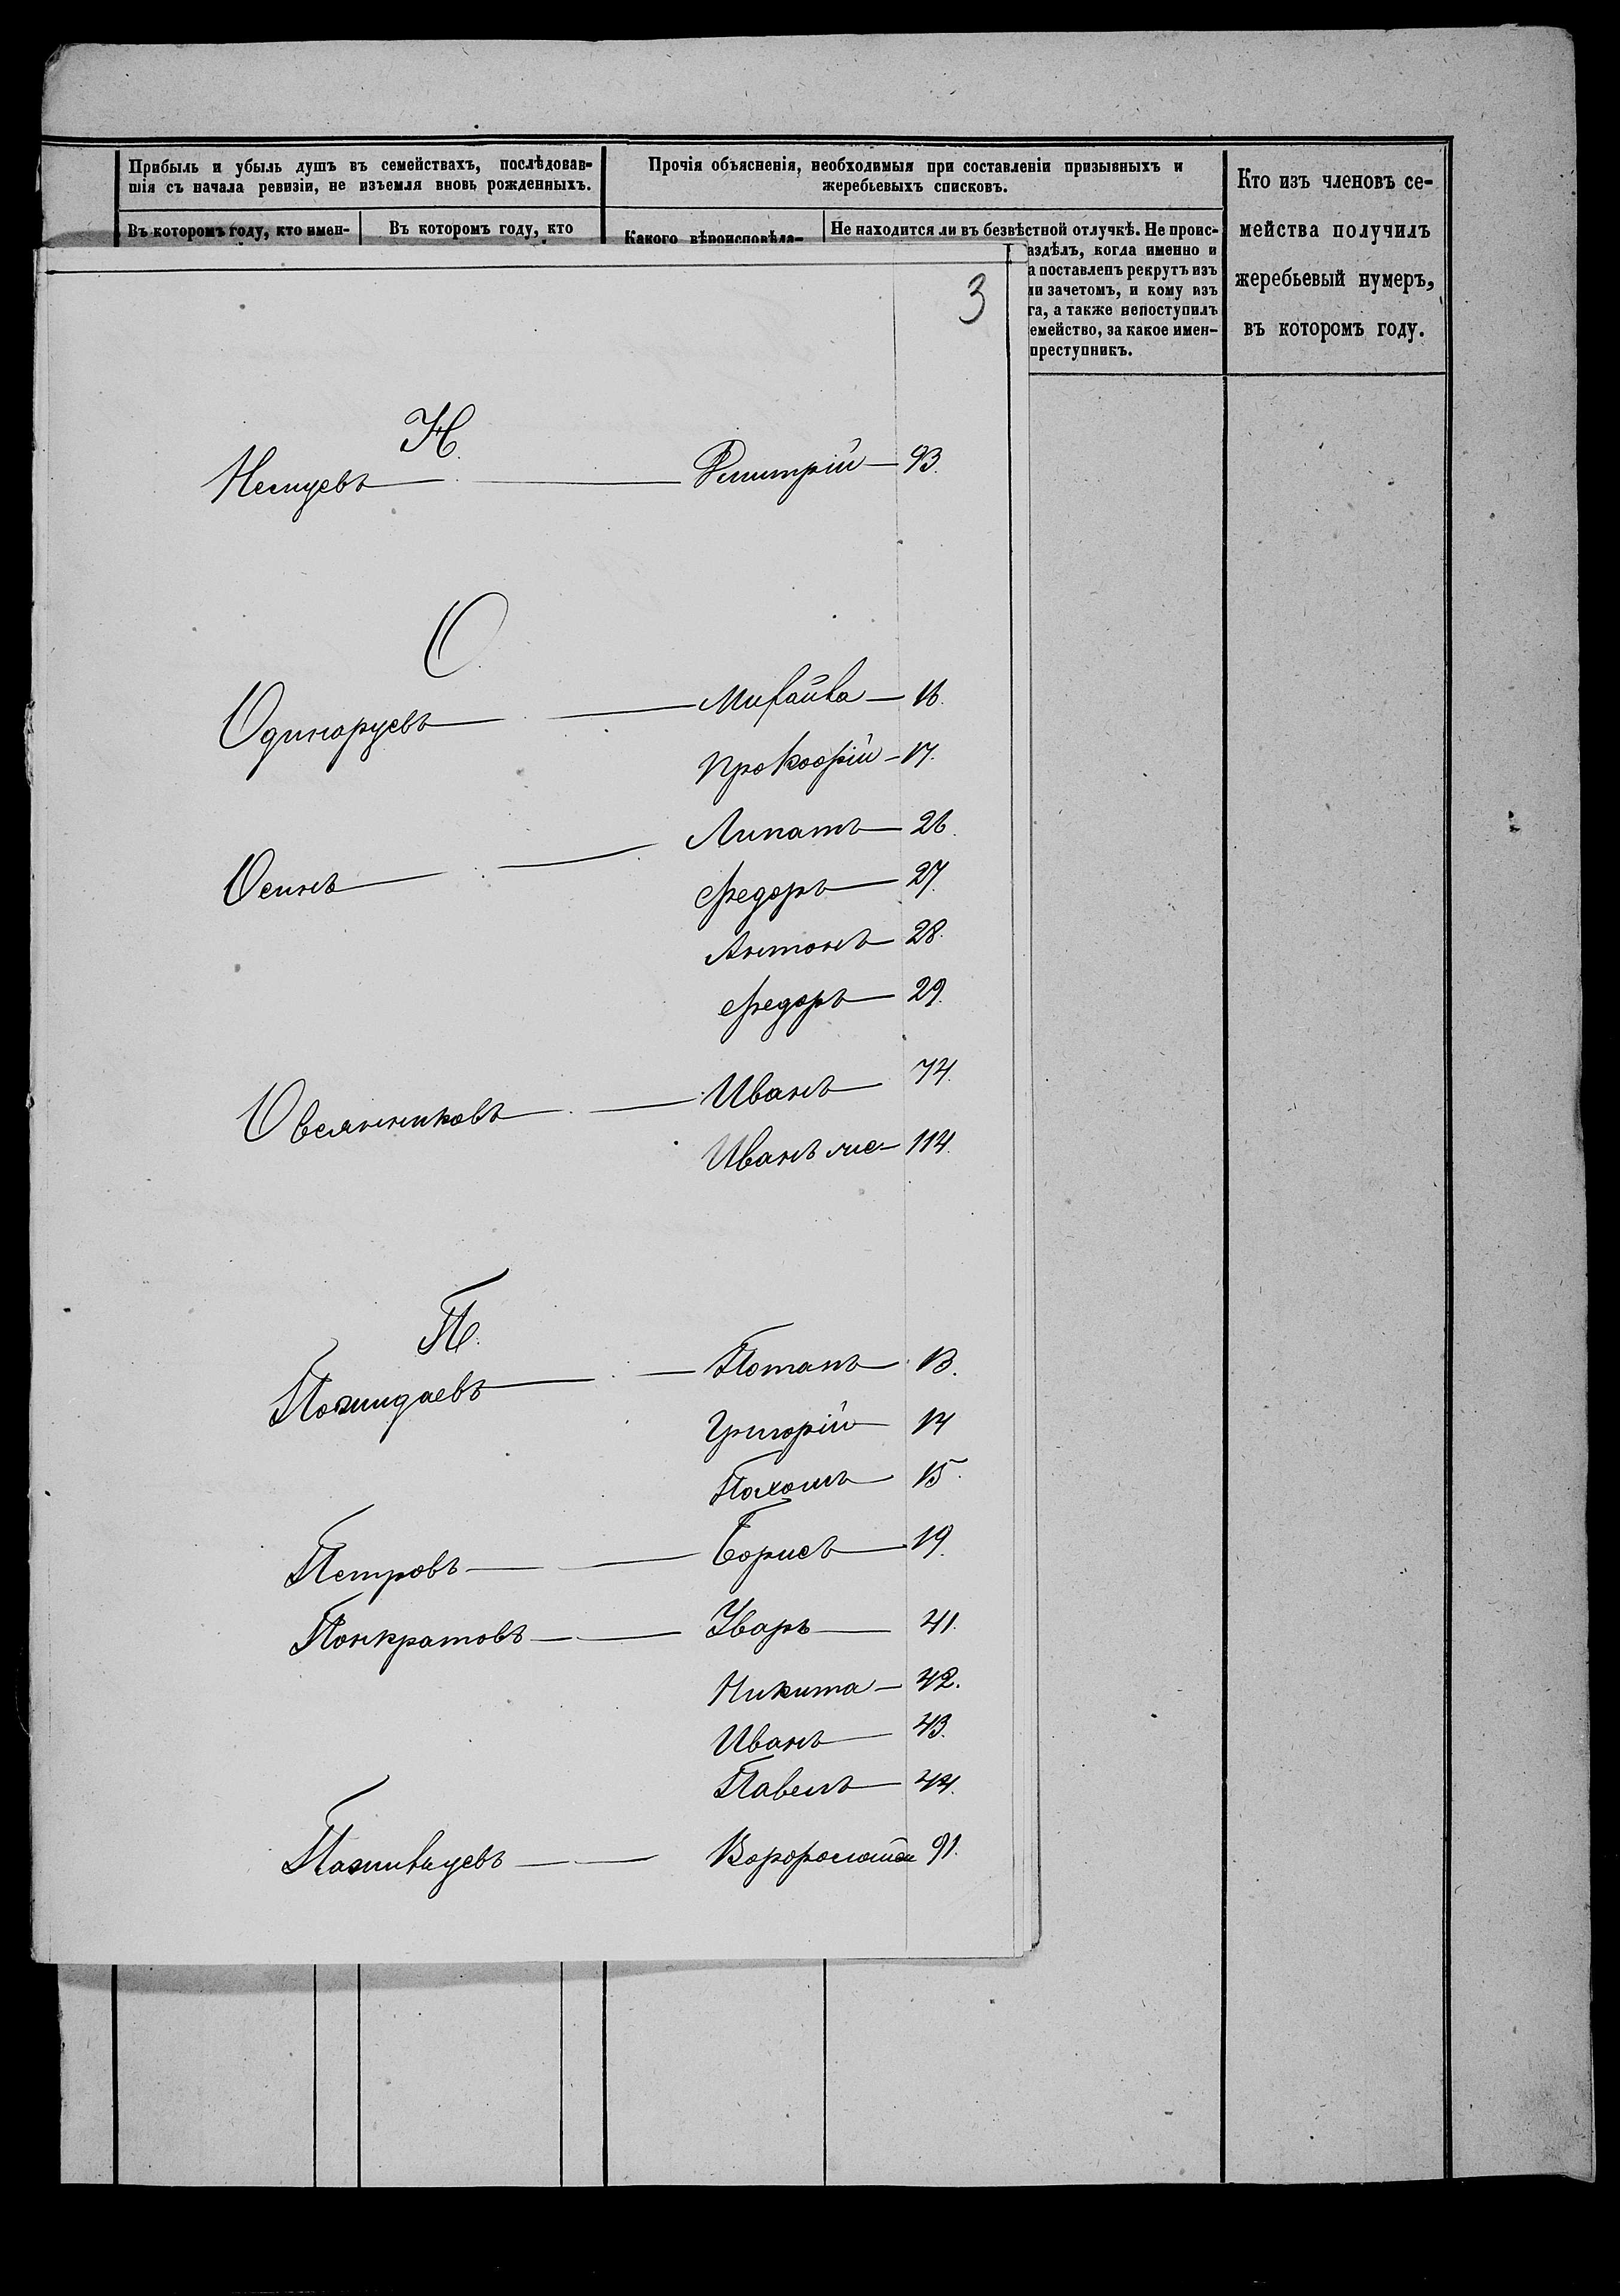 Прибыль и убыль душъ въ семействахъ, послѣдовав-
шія съ начала ревизіи, не изъемля вновь рожденныхъ.
Прочія объясненія, необходимыя при составленіи призывныхъ и
жеребьевыхъ списковъ.
Кто изъ членовъ се-
мейства получилъ
жеребьевый нумеръ,
въ которомъ году.
Въ которомъ году, кто имен-
Въ которомъ году, кто
Какого вѣроисповѣда-
Не находится ли въ безвѣстной отлучкѣ. Не проис-
аздѣлъ, когда именно и
а поставленъ рекрутъ изъ
ли зачетомъ, и кому изъ
га, а также непоступилъ
емейство, за какое имен-
преступникъ.
3
Н.
Немцевъ — Дмитрій — 93.
О.
Одинарцевъ — — 16.
Прокофій — 17.
Осинъ — Липатъ — 26.
Федоръ — 27.
Антонъ — 28.
Федоръ — 29.
Овсянниковъ — Иванъ — 74.
Иванъ — 114.
П.
Пожидаевъ — Потапъ — 13.
Григорій — 14
Пахомъ — 15.
Петровъ — Борисъ — 19.
Понкратовъ — Уваръ — 41.
Никита — 42.
Иванъ — 43.
Павелъ — 44.
91.